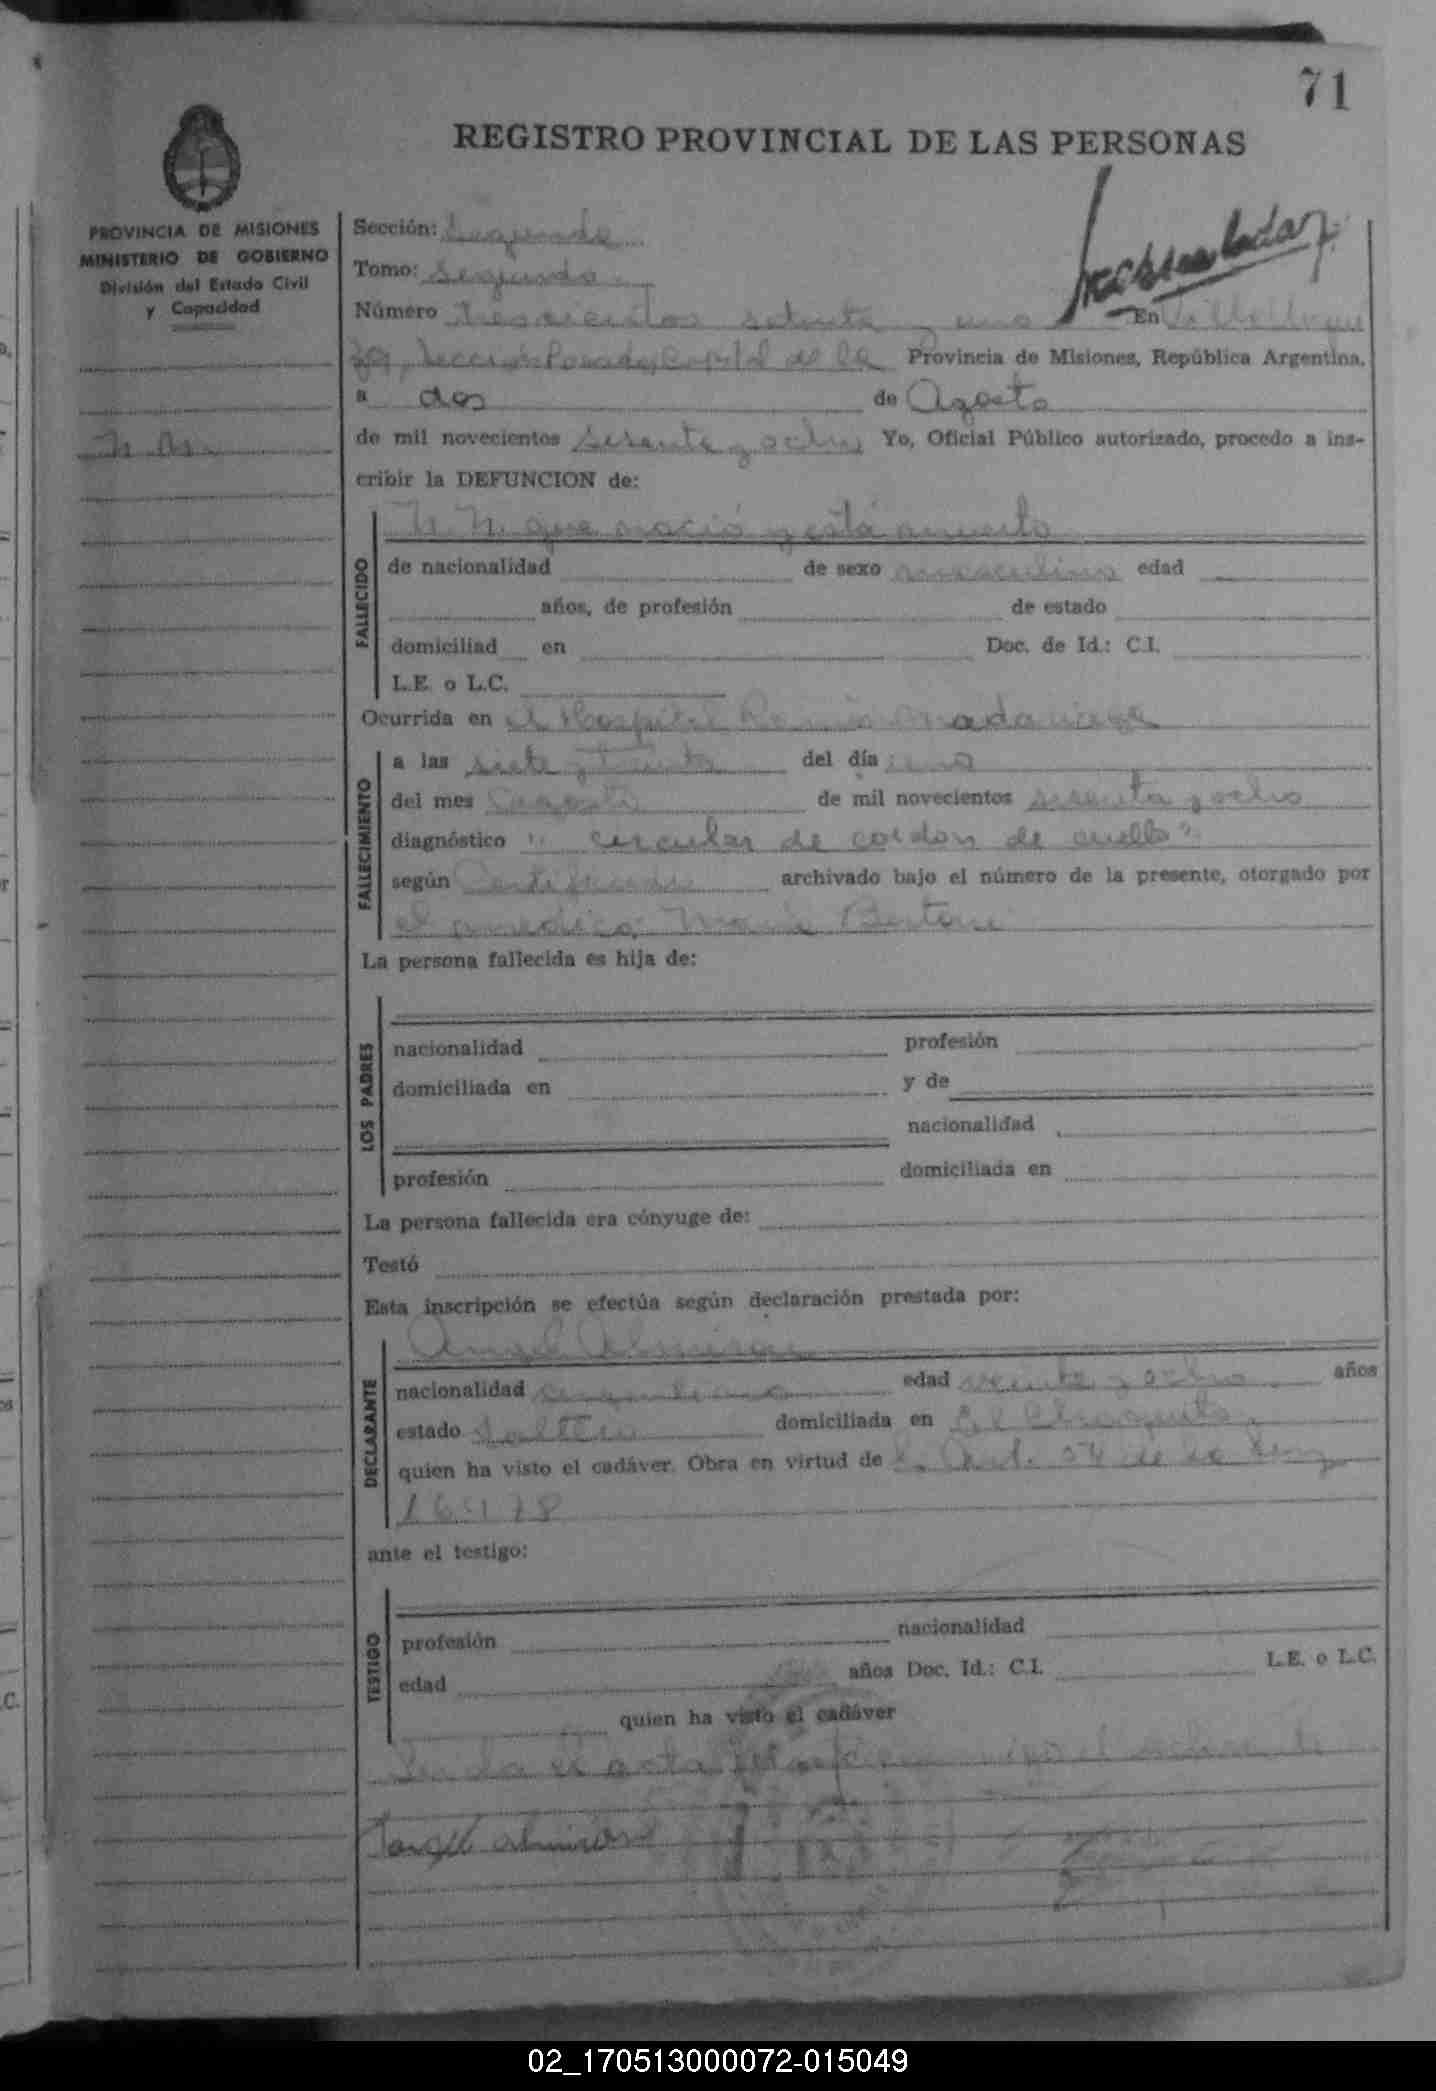 71
REGISTRO PROVINCIAL DE LAS PERSONAS
PROVINCIA DE MISIONES
MINISTERIO DE GOBIERNO
División del Estado Civil
y Capacidad
N. N.
Sección: Segunda
Tomo: Segundo
Número trescientos setenta y uno En Villa Urqui
za, Sección Posadas, Capital de la Provincia de Misiones, República Argentina,
a dos de Agosto
de mil novecientos sesenta y ocho Yo, Oficial Público autorizado, procedo a ins-
cribir la DEFUNCION de:
FALLECIDO
N. N. que nació y está muerto
de nacionalidad de sexo masculino edad
años, de profesión de estado
domiciliad en Doc. de Id.: C.I.
L.E. o L.C.
Ocurrida en el Hospital Ramón Madariaga
FALLECIMIENTO
a las siete y treinta del día uno
del mes Agosto de mil novecientos sesenta y ocho
diagnóstico "circular de cordon de cuello"
según Certificado archivado bajo el número de la presente, otorgado por
el medico: Bertoni
La persona fallecida es hija de:
LOS PADRES
nacionalidad profesión
domiciliada en y de
nacionalidad
profesión domiciliada en
La persona fallecida era cónyuge de:
Testó
Esta inscripción se efectúa según declaración prestada por:
DECLARANTE
Angel Almiron
nacionalidad argentino edad veinte y ocho años
estado soltero domiciliada en El Chaquito
quien ha visto el cadáver. Obra en virtud de Art. de la Ley
ante el testigo:
TESTIGO
profesión nacionalidad
edad años Doc. Id.: C.I. L.E. o L.C.
quien ha visto el cadáver
Leida el acta
Angel Almiron
02_170513000072-015049